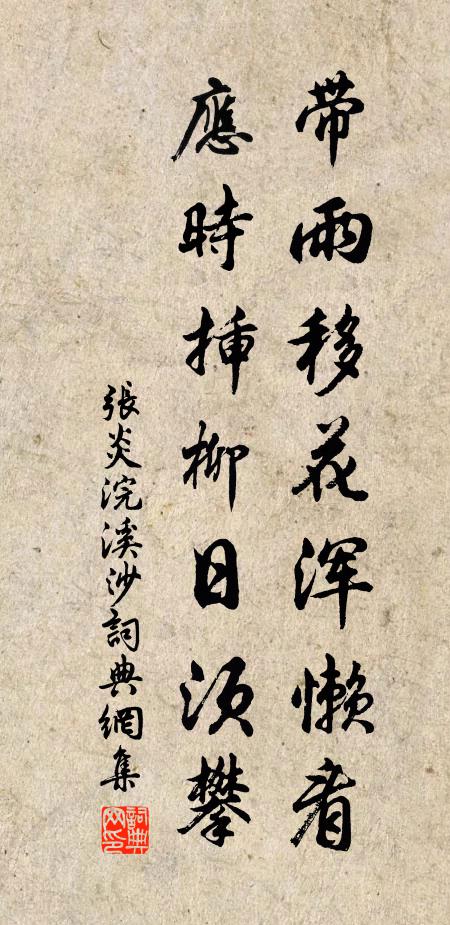 帶雨移花浑懒看
應時插柳日须攀
張炎浣溪沙詞典網集
詞典网印